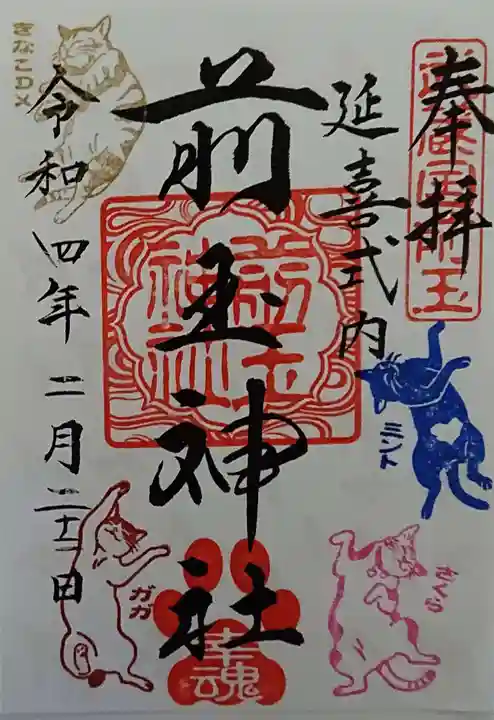 奉拝
武蔵国前玉
延喜式内
前玉神社
前玉
神社
幸魂
令和四年二月二十二日
きなこDX
ミント
ガガ
さくら